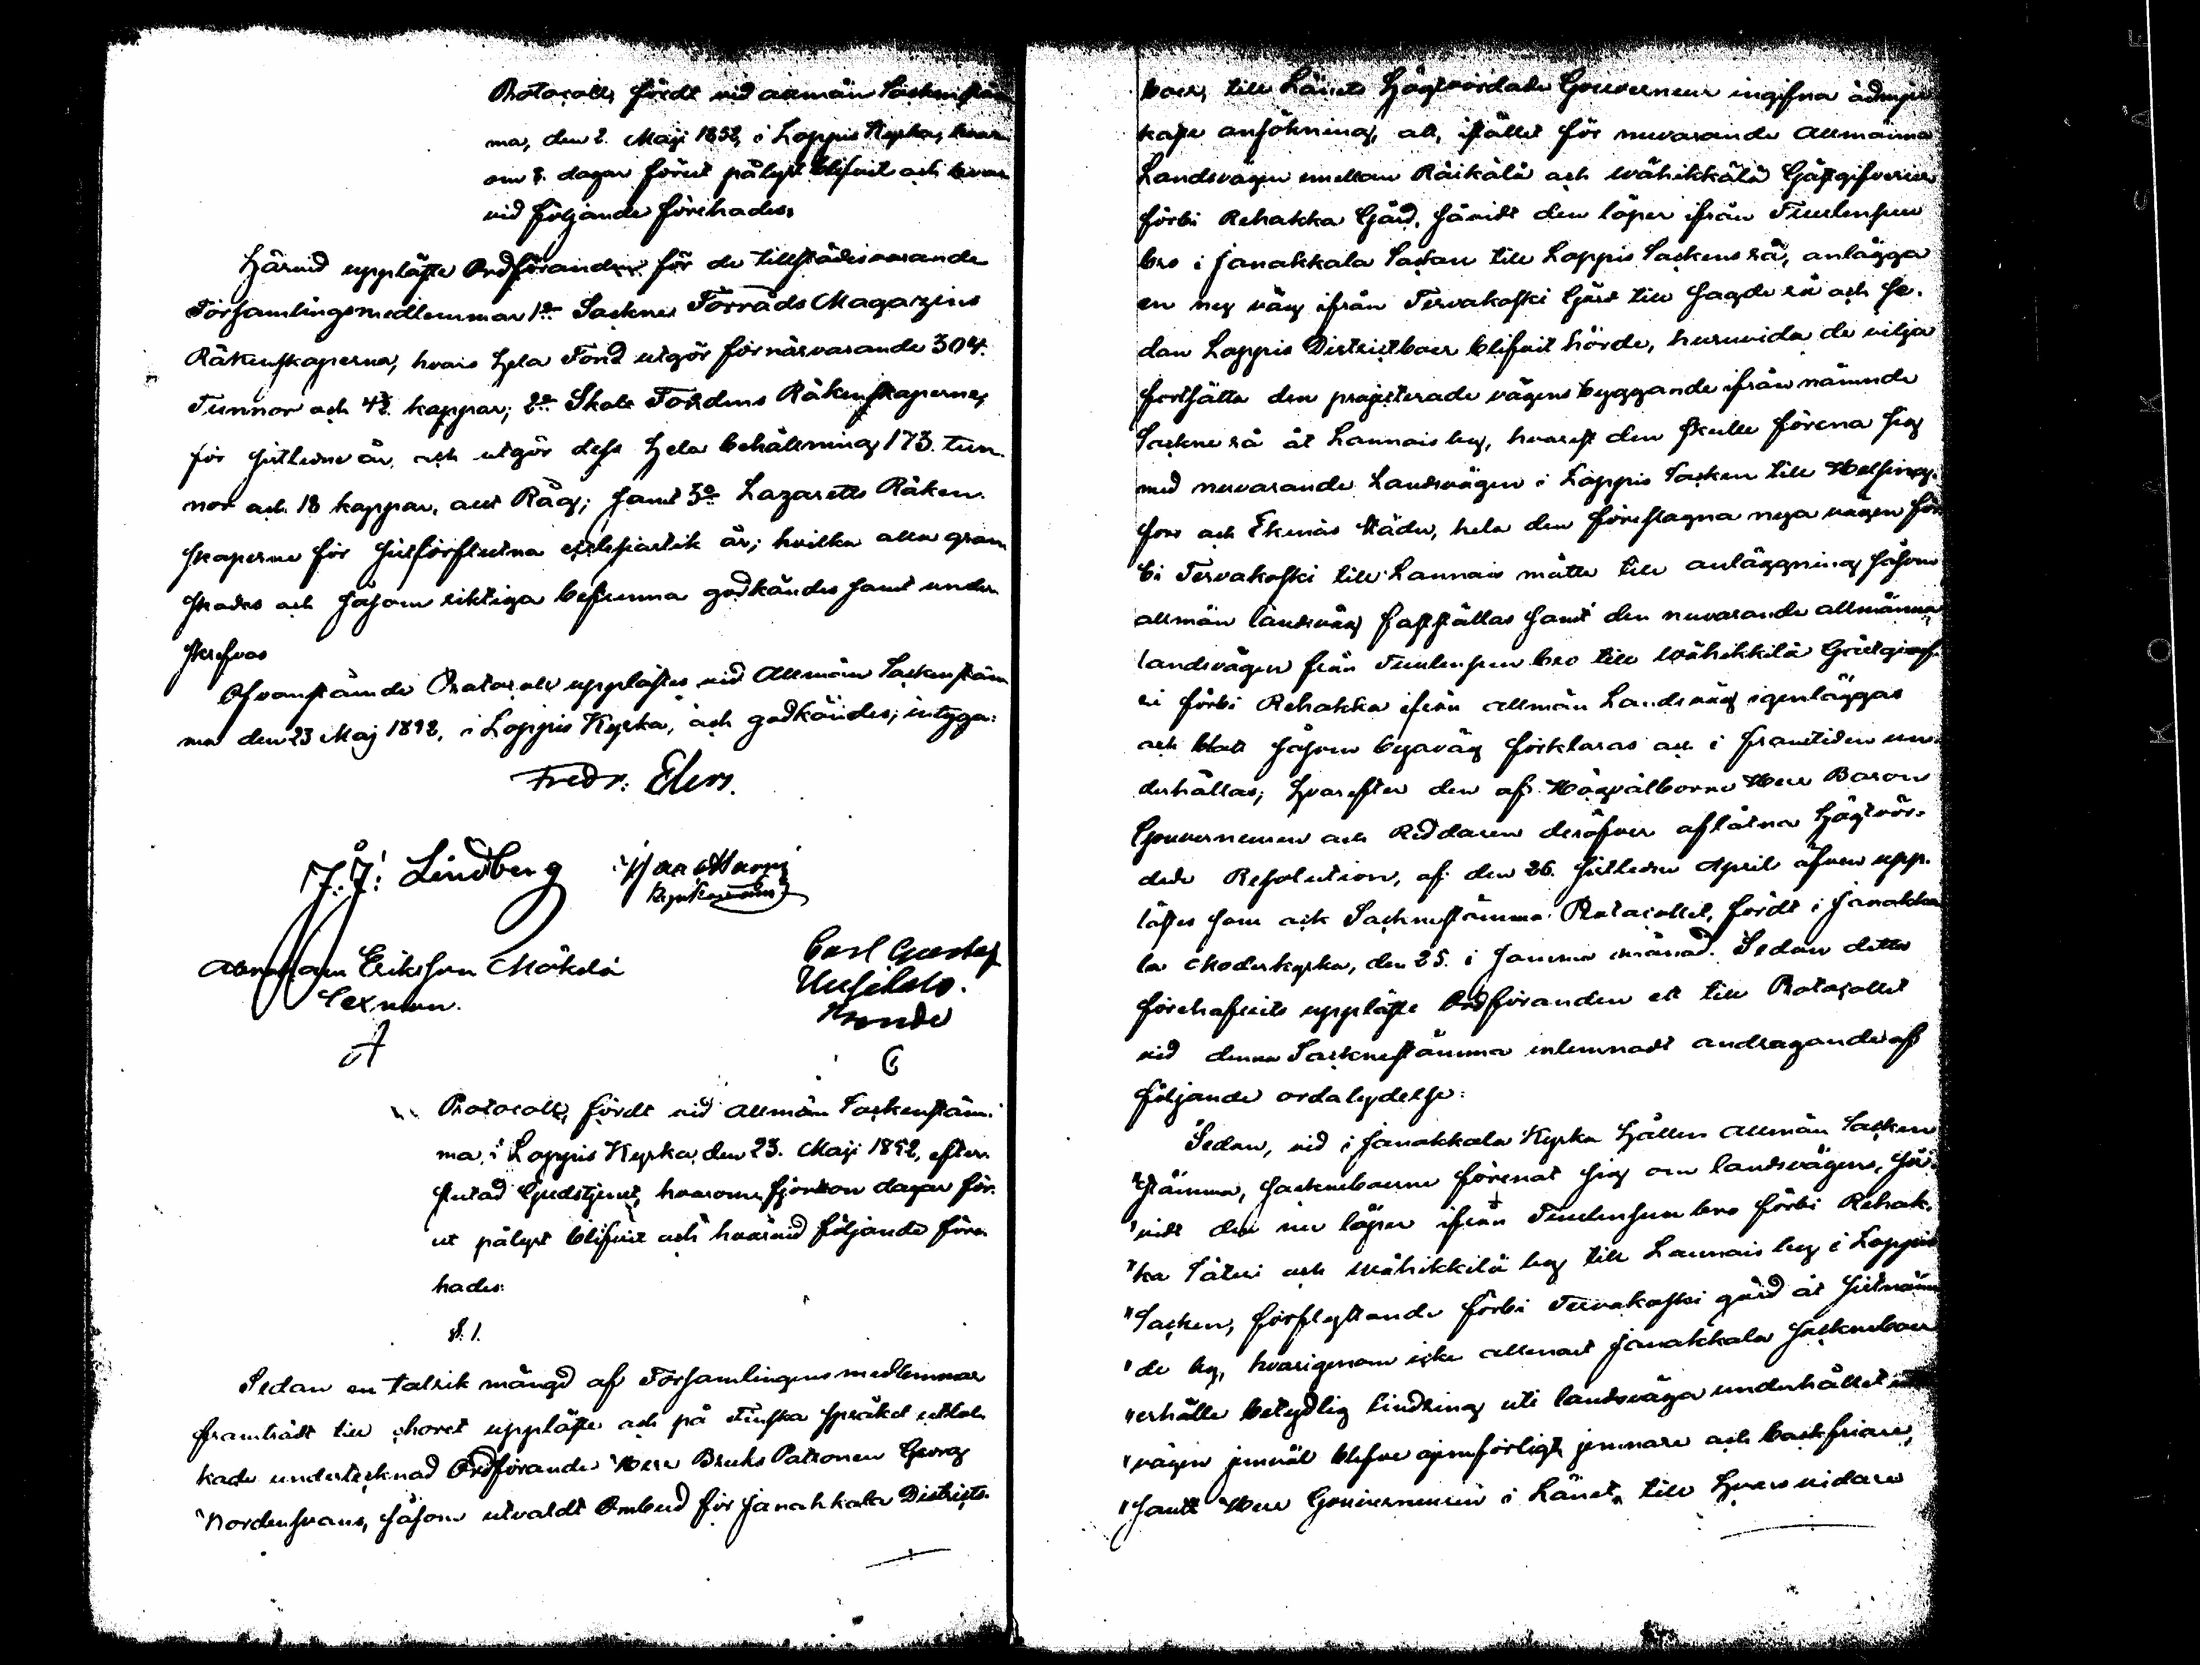 Protocoll, fördt vid allmän Sockenstäm
ma, den 2. Maji 1852, i Loppis Kyrka, hvar
om 8. dagar förut pålyst blifvit och hvar
vid följande förehades.
Härvid uppläste Ordföranden för de tillstädesvarande
Församlingsmedlemmar 1:o Sockne Förråds Magazins
Räkenskaperna, hvars hela Fond utgör förnärvarande 304.
Tunnor och 4½ kappar; 2:o Skole Fondens Räkenskaperne,
för sistledne år, och utgör dess hela behållning 173. tun-
nor och 18 kappar, allt Råg; samt 3:o Lazaretts Räken-
skaperne för sistförflutna ecclesiastik år; hvilka alla gran
skades och såsom riktiga befunna godkändes samt under
skrefvos
Ofvanstående Protocoll upplästes vid Allmän Sockenstäm
ma den 23 Maj 1852, i Loppis Kyrka, och godkändes; intyga:
Fredr: Elers.
J. J: Lindberg
Abraham Eriksson Mökelä
Sexman.
Carl Gustaf
Uusitalo.
Bonde
Protocoll, fördt vid allmän Sockenstäm-
ma, i Loppis Kyrka, den 23. Maji 1852, efter
slutad Gudstjenst, hvarom fjorton dagar för-
ut pålyst blifvit och hvarvid följande före
hades:
§. 1.
Sedan en talrik mängd af Församlingens medlemmar
framträdt till choret uppläste och på Finska språket uttol
kade undertecknad Ordförande Herr Bruks Patronen Georg
Nordensvans, såsom utvaldt Ombud för Janakkala Districts-
boer, till Länets Högtvördade Gouverneur ingifna ödmju
kaste ansökning, att, istället för nuvarande allmänna
Landsvägen emellan Räikälä och Wähikkälä Gästgifverier
förbi Rehakka Gård, såvidt den löper ifrån Tuulensuu
bro i Janakkala Socken till Loppis Sockens rå, anlägga
en ny väg ifrån Tervakoski Gård till sagde rå och se-
dan Loppis Districtboer blifvit hörde, huruvida de vilja
fortsätta den projecterade vägens byggande ifrån nämnde
Sockne rå åt Launois by, hvarest den skulle förena sig
med nuvarande Landsvägen i Loppis Socken till Helsing-
fors och Ekenäs städer, hela den föreslagna nya vägen för
bi Tervakoski till Launois måtte till anläggning såsom
allmän landsväg fastställas samt den nuvarande allmänna
landsvägen från Tuulensuu bro till Wähikkilä Gästgifve
ri förbi Rehakka ifrån allmän Landsväg igenläggas
och blott såsom byaväg förklaras och i framtiden un-
derhållas; hvarefter den af Högvälborne Herr Baron
Gouverneuren och Riddaren deröfver aflåtna Högtvör-
dade Resolution, af den 26. sistledne April äfven upp-
lästes som ock Socknestämma Protocollet, fördt i Janakka
la Moderkyrka, den 25. i samma månad. Sedan detta
förehafvits uppläste Ordföranden ett till Protocollet
vid denna Socknestämma inlemnadt andragande af
följande ordalydelse:
"Sedan, vid i Janakkala Kyrka hållen allmän Socken
"stämma, sockneboerne förenat sig om landsvägens, så-
"vidt den nu löper ifrån Tuulensuu bro förbi Rehak-
"ka Säteri och Wähikkilä by till Launois by i Loppis
"Socken, förflyttande förbi Tervakoski gård åt sistnämn
"de by, hvarigenom icke allenast Janakkala socknebor
"erhålla betydlig lindring uti landsväga underhållet
"vägen jemväl blefve ojemförligt jemnare och backfriare,
"samt Herr Gouverneuren i Länet, till hvars vidare